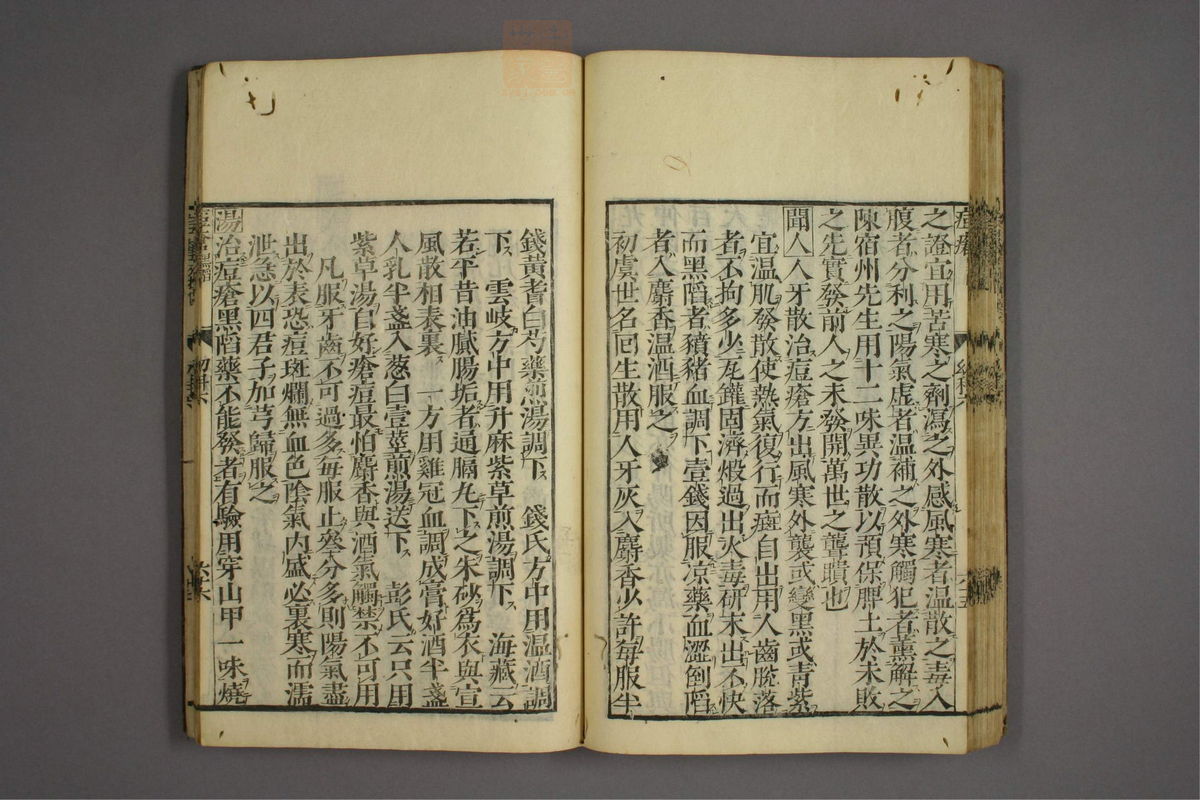 之證宜用苦寒之劑瀉之外感風寒者溫散之毒入
腹者分利之陽氣虛者溫補之外寒觸犯者熏解之
陳宿州先生用十二味異功散以預保脾土於未敗
之先實發前人之未發開萬世之聾瞶也
聞人人牙散治痘瘡方出風寒外襲或變黑或青紫
宜溫肌發散使熱氣復行而癍自出用人齒脫落
者不拘多少瓦鑵固濟煅過出火毒研末出不快
而黑陷者豶猪血調下壹錢因服凉藥血澀倒陷
者入麝香溫酒服之
初虞世名囘生散用人牙灰入麝香少許每服半
錢黃耆白芍藥煎湯調下 錢氏方中用溫酒調
下 雲岐方中用升麻紫草煎湯調下 海藏云
若平昔油膩腸垢者通膈丸下之朱砂爲衣與宣
風散相表裏 一方用雞冠血調成膏好酒半盞
人乳半盞入葱白壹莖煎湯送下 彭氏云只用
紫草湯自好瘡痘最怕麝香與酒氣觸禁不可用
凡服牙齒不可過多每服止叁分多則陽氣盡
出於表恐痘斑爛無血色陰氣內盛必裏寒而濡
泄急以四君子加芎歸服之
湯治痘瘡黑陷藥不能發者有驗用穿山甲一味燒